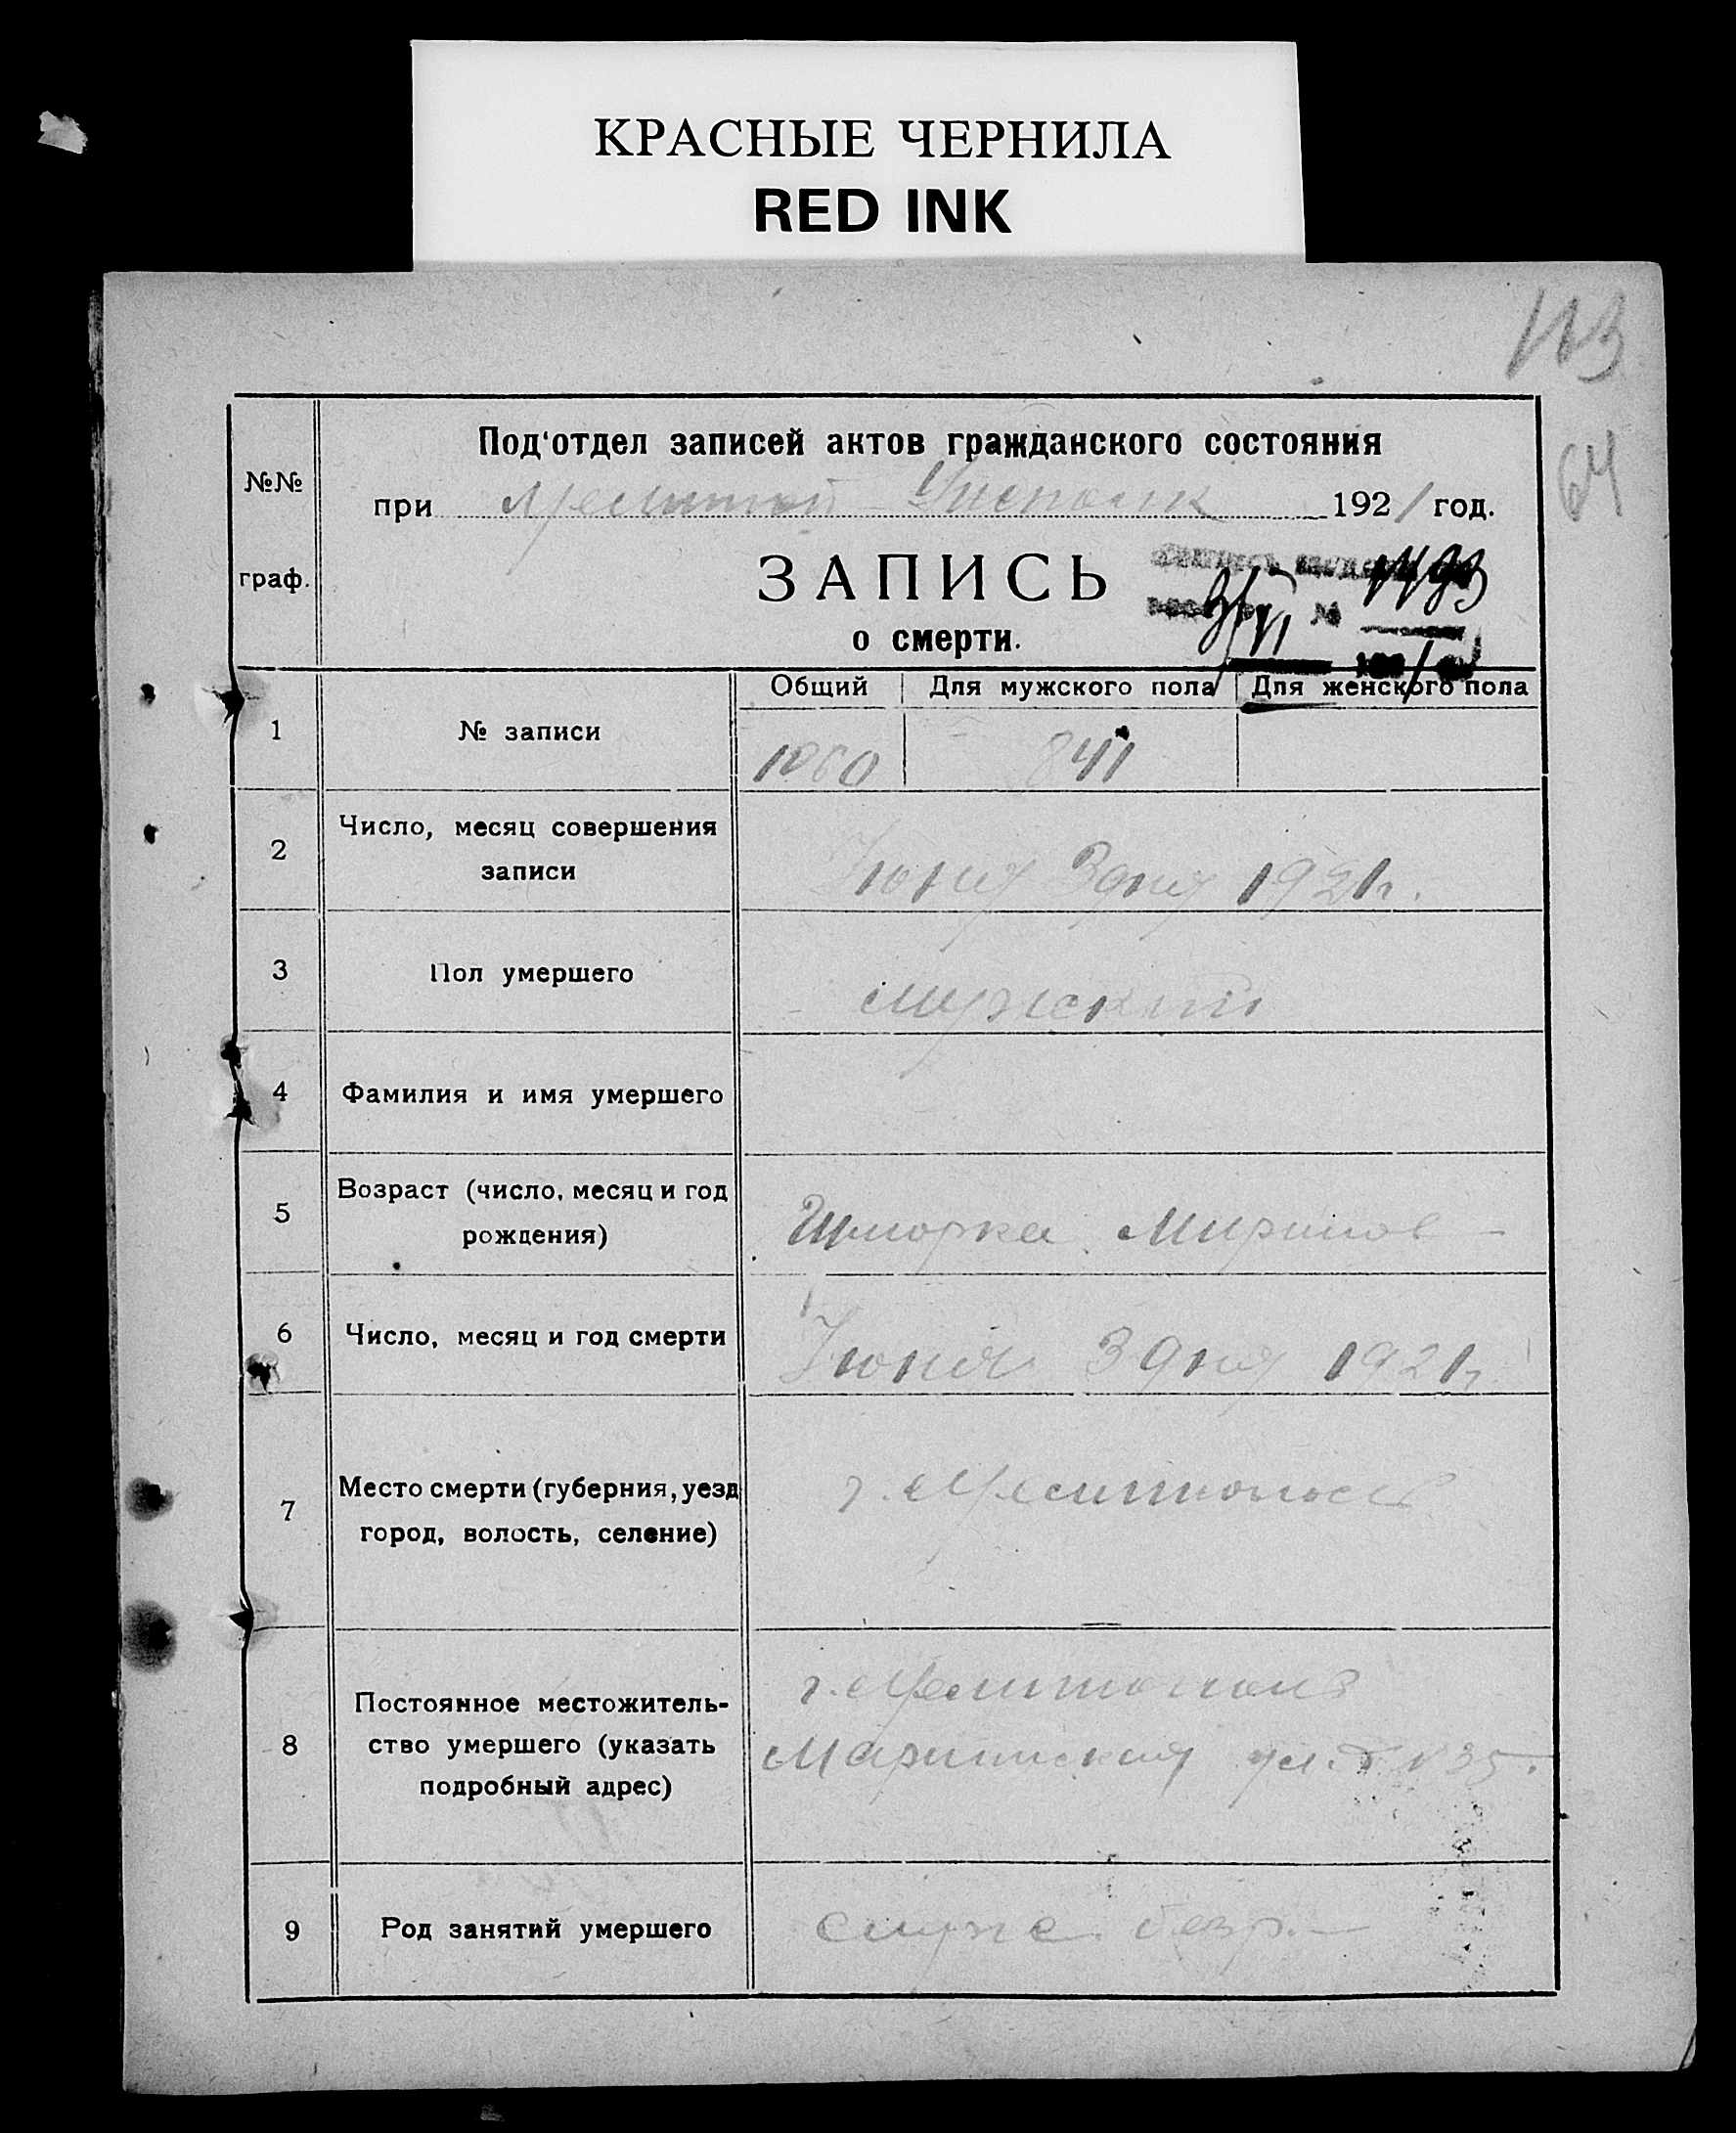 КРАСНЫЕ ЧЕРНИЛА
RED INK
113
64
Под'отдел записей актов гражданского состояния
№№
при 1921 год.
граф.
ЗАПИСЬ
о смерти.
№
Общий Для мужского пола Для женского пола
1 № записи
1060 841
2 Число, месяц совершения
записи
Июня 3 дня 1921 г.
3 Пол умершего
мужской
4 Фамилия и имя умершего
5 Возраст (число, месяц и год
рождения)
6 Число, месяц и год смерти
Июня 3 дня 1921 г.
7 Место смерти (губерния, уезд
город, волость, селение)
г. Мелитополь
8 Постоянное местожитель-
ство умершего (указать
подробный адрес)
г. Мелитополь
Мариинская ул. 35.
9 Род занятий умершего